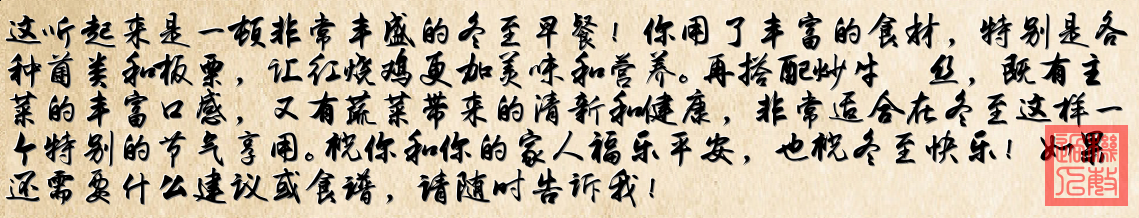 这听起来是一顿非常丰盛的冬至早餐！你用了丰富的食材，特别是各
种菌类和板栗，让红烧鸡更加美味和营养。再搭配炒牛 丝，既有主
菜的丰富口感，又有蔬菜带来的清新和健康，非常适合在冬至这样一
个特别的节气享用。祝你和你的家人福乐平安，也祝冬至快乐！如果
还需要什么建议或食谱，请随时告诉我！